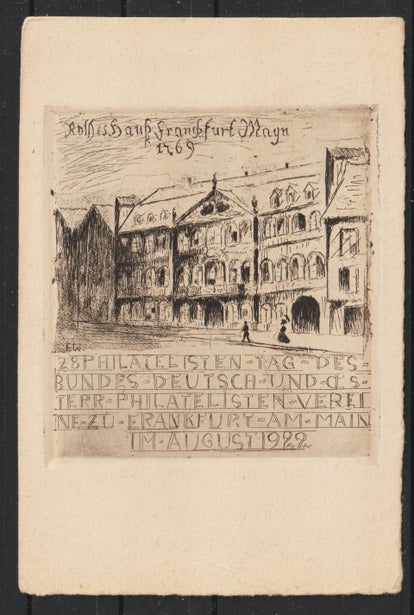 Rothes Hauß Frankfurt Mayn
1769
E.W.
28 PHILATELISTEN-TAG-DES-
BUNDES-DEUTSCH-UND-OES-
TERR-PHILATELISTEN-VEREI
NE-ZU-FRANKFURT-AM-MAIN
IM-AUGUST 1922